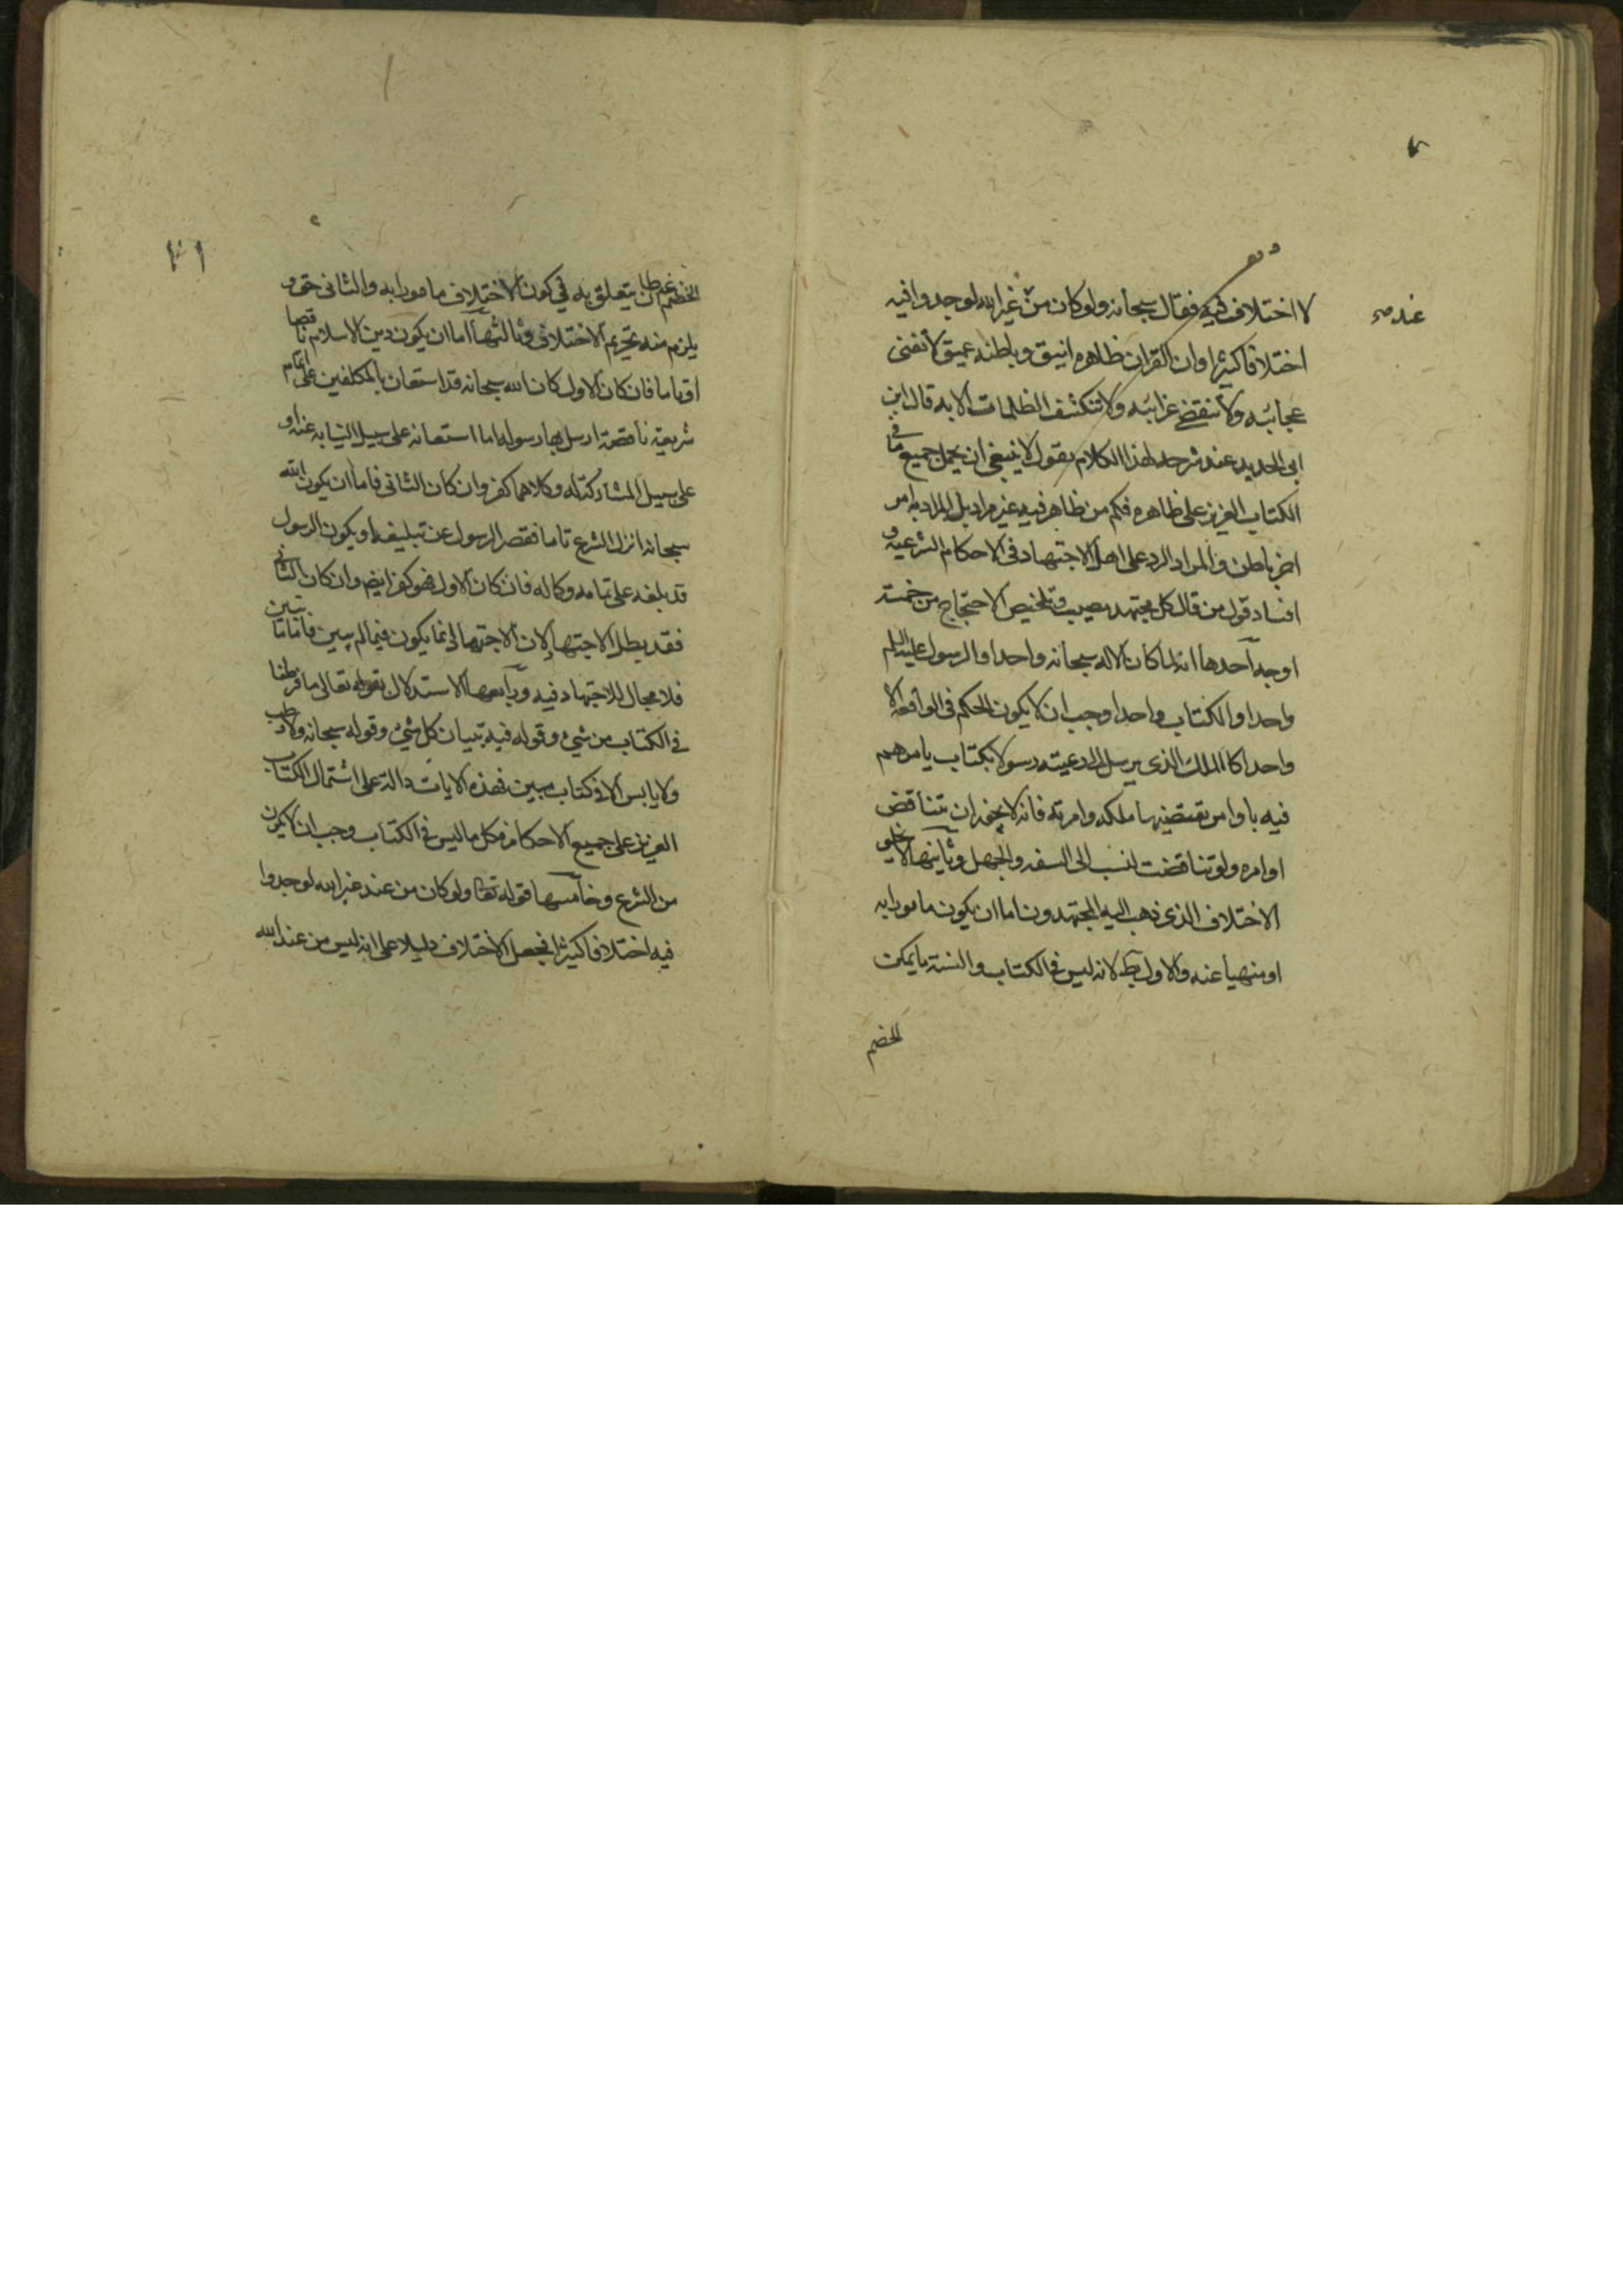 لا اختلاف فيه فقال سبحانه ولو كان من غير الله لوجدوا فيه
عند صح
اختلافا كثيرا وان القران ظاهره انيق وباطنه عميق لا تفنى
عجائبه ولا تنقضے غرائبه ولا تنكشف الظلمات الا به قال ابن
ابى الحديد عند شرحه لهذا الكلام يقول لا ينبغى ان يحمل جميع ما فى
الكتاب العزيز على ظاهره فكم من ظاهر فيه غير مراد بل المراد به امر
اخر باطن والمراد الرد على اهل الاجتهاد فى الاحكام الشرعية و
افساد قول من قال كل مجتهد مصيب وتلخيص الاحتجاج من خمسة
اوجه احدها انه لما كان الاله سبحانه واحدا والرسول عليه السلم
واحدا والكتاب واحدا وجب ان لا يكون الحكم فى الواقعة الا
واحدا كالملك الذى يرسل الى رعيته رسولا بكتاب يامرهم
فيه باوامر يقتضيها ملكه وامرته فانه لا يجوز ان تتناقض
اوامره ولو تناقضت لنسب الى السفه والجهل وثانيها لا يخلو
الاختلاف الذى ذهب اليه المجتهدون اما ان يكون مامورا به
او منهيا عنه والاول بط لانه ليس فى الكتاب والسنة ما يمكن
الخصم
الخصم ان يتعلق به في كون الاختلاف مامورا به والثانى حق و
يلزم منه تحريم الاختلاف وثالثها اما ان يكون دين الاسلام ناقصا
او تاما فان كان الاول كان الله سبحانه قد استعان بالمكلفين على اتمام
شريعة ناقصة ارسل بها رسوله اما استعانة على سبيل النيابة عنه او
على سبيل المشاركة له وكلاهما كفر وان كان الثانى فاما ان يكون الله
سبحانه انزل الشرع تاما فقصر الرسول عن تبليغه او يكون الرسول
قد بلغه على تمامه وكماله فان كان الاول فهو كفر ايضم وان كان الثانى
فقد بطل الاجتهاد لان الاجتهاد انما يكون فيما لم يبين فاما ما تبين
فلا مجال للاجتهاد فيه ورابعها الاستدلال بقوله تعالى ما فرطنا
فى الكتاب من شئ وقوله فيه تبيان كل شئ وقوله سبحانه ولا رطب
ولا يابس الا فى كتاب مبين فهذه الايات دالة على اشتمال الكتاب
العزيز على جميع الاحكام فكل ما ليس فى الكتاب وجب ان لا يكون
من الشرع وخامسها قوله تعا ولو كان من عند غير الله لوجدوا
فيه اختلافا كثيرا فجعل الاختلاف دليلا على انه ليس من عند الله